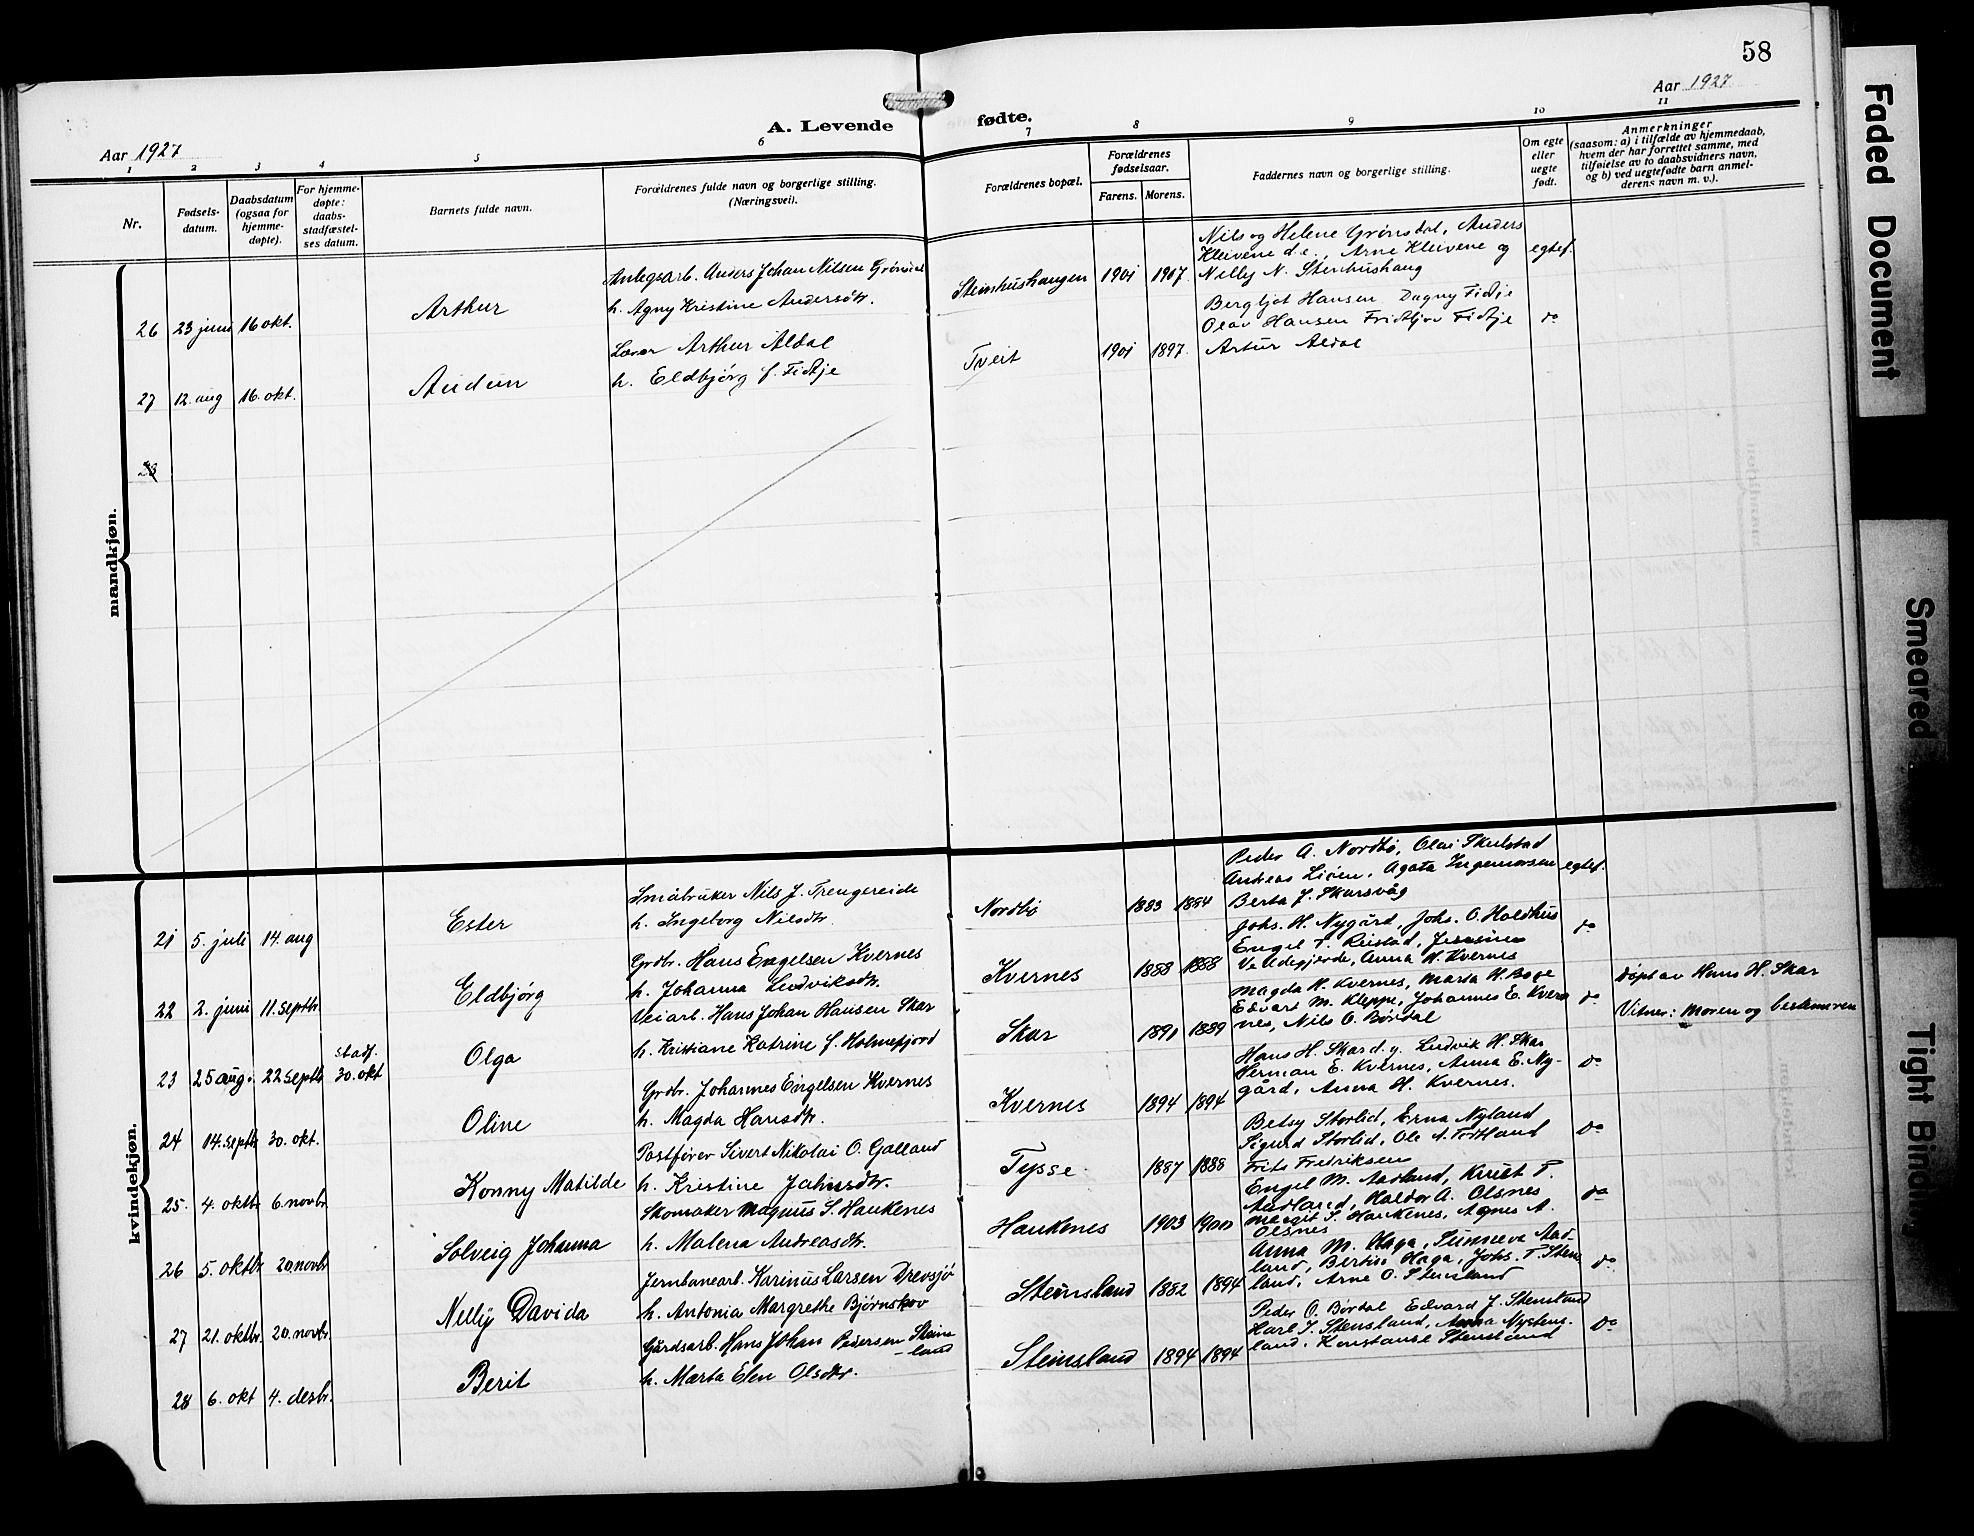 58
Aar 1927
Aar 1927
A. Levende fødte.
1 2 3 4 5 6 7 8 9 10 11
Nr.
Fødsels-
datum.
Daabsdatum
(ogsaa for
hjemme-
døpte).
For hjemme-
døpte:
daabs-
stadfæstel-
ses datum.
Barnets fulde navn.
Forældrenes fulde navn og borgerlige stilling.
(Næringsvei).
Forældrenes bopæl.
Forældrenes
fødselsaar.
Farens. Morens.
Faddernes navn og borgerlige stilling.
Om egte
eller
uegte
født.
Anmerkninger
(saasom: a) i tilfælde av hjemmedaab,
hvem der har forrettet samme, med
tilføielse av to daabsvidners navn,
og b) ved uegtefødte barn anmel-
derens navn m. v.).
mandkjøn.
26 23 juni 16 okt.
Arthur
Anlegsarb. Anders Johan Nilsen Grønsdal
h. Agny Kristine Andersdtr.
Steinshushaugen 1901 1907
Nils og Helene Grønsdal, Anders
Kleivene d.e., Arne Kleivene og
Nelly N. Steinhushaug
egtef.
27 12. aug 16. okt.
Audun
Lærer Arthur Aldal
h. Eldbjörg f. Fidtje
Tveit 1901 1897
Bergljot Hansen Dagny Fidtje
Olav Hansen Fridtjov Fidtje
Artur Aldal
do
28
kvindekjøn.
21 5. juli 14. aug
Ester
Småbruker Nils J. Trengereide
h. Ingeborg Nilsdtr.
Nordbø 1883 1884
Peder A. Nordbø, Olai Skulstad
Andreas Liøen, Agata Ingemorsen
Berta J. Skarsvåg
egtef.
22 2. juni 11. septbr
Eldbjørg
Grdbr. Hans Engelsen Kvernes
h. Johanna Ludviksdtr.
Kvernes 1888 1888
Johs. H. Nygård, Johs. O. Holdhus
Engel T. Reistad,
Anna H. Kvernes
do
23 25 aug. 22 septb stadf. 30. okt
Olga
Veiarb. Hans Johan Hansen Skar
h. Kristiane Katrine f. Holmefjord
Skar 1891 1889
Magda H. Kvernes, Marta H. Boge
Edvart M. Kleppe, Johannes E. Kver
nes, Nils O. Børdal
do
Døpt av Hans H. Skar
Vitner: Moren og bestemoren
24 14. septbr 30. okt.
Oline
Grdbr. Johannes Engelsen Kvernes
h. Magda Hansdtr.
Kvernes 1894 1894
Hans H. Skar d.y. Ludvik H. Skar
Herman E. Kvernes, Anna E. Ny-
gård, Anna H. Kvernes.
do
25. 4. oktbr 6. novbr
Konny Matilde
Postfører Sivert Nikolai O. Galland
h. Kristine Jahnsdtr.
Tysse 1887 1888
Betsy Storlid, Erna Nyland
Sigurd Storlid, Ole A. Fodtland
Frits Fredriksen
do
26 5. oktbr 20. novbr
Solveig Johanna
Skomaker Magnus S. Haukenes
h. Malena Andreasdtr.
Haukenes 1903 1900
Engel M. Aadland, Knut T.
Aadland, Haldor A. Olsnes
Margit S. Haukenes, Agnes A.
Olsnes
do
27 21. oktbr. 20. novbr.
Nelly Davida
Jernbanearb. Karinus Larsen Drevsjø
h. Antonia Margrethe Bjørnskov
Steinsland 1882 1894
Anna M. Haga, Sunneva Aad-
land, Bertus Haga, Johs. T. Stens
land, Arne O. Stensland
do
28 6. okt 4. desbr.
Berit
Gårdsarb. Hans Johan Pedersen Steins
-land
h. Marta Elen Olsdtr.
Steinsland 1894 1894
Peder O. Børdal Edvard J. Stensland
Karl J. Stensland, Anna Nystens-
land, Konstanse Stensland
do
Faded Document
Smeared
Tight Binding